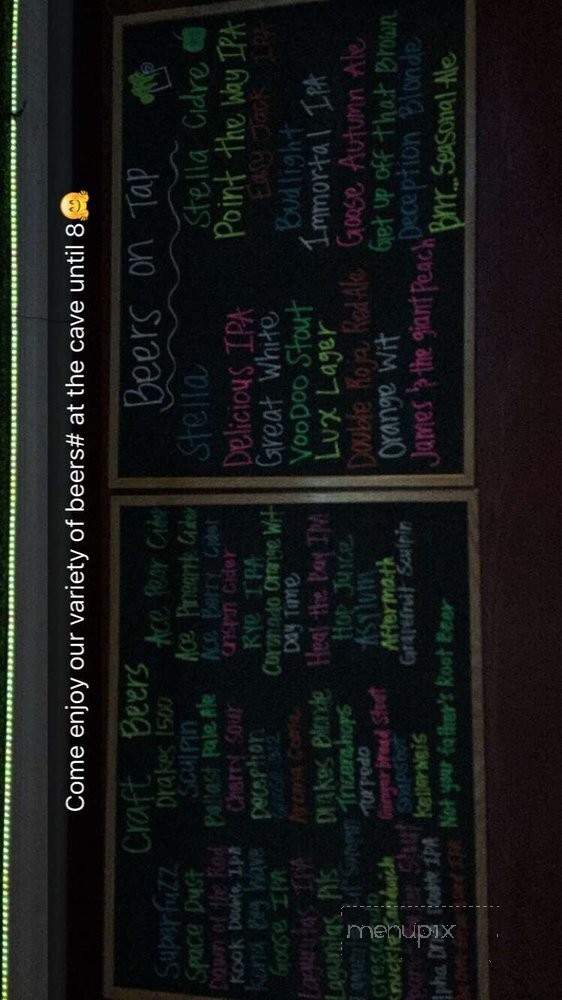 Come enjoy our variety of beers# at the cave until 8🤗
Craft Beers
Sugar Fuzz
Space Dust
Dawn of the Red
Kook Double IPA
Kona Big Wave
Goose IPA
Lagunitas IPA
Lagunitas Pils
Drakes 1500
Sculpin
Ballast Pale Ale
Cherry Sour
Deception
Aroma Coma
Drakes Blonde
Tricerahops
Torpedo
Gingerbread Stout
Kellerweis
Not your father's Root Beer
Ace Pear Cider
Ace Pineapple Cider
Ace Berry Cider
Crispin Cider
Rye IPA
Coronado Orange Wit
Day Time
Heal the Bay IPA
Hop Juice
Asylum
Aftermath
Grapefruit Sculpin
Beers on Tap
Stella
Delicious IPA
Great White
VooDoo Stout
Lux Lager
Double Roja Red Ale
Orange Wit
James & the giant Peach
Stella Cidre
Point the Way IPA
Easy Jack IPA
Budlight
Immortal IPA
Goose Autumn Ale
Get up off that Brown
Deception Blonde
Brrr... Seasonal Ale
menupix